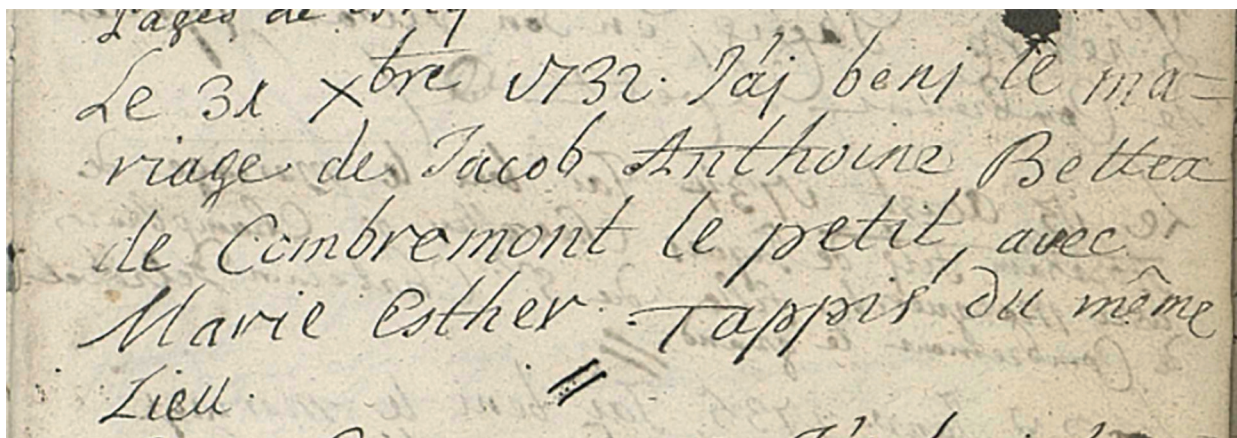 Le 31 Xbre 1732. J'aj benj le ma=
riage de Jacob Anthoine Bettex
de Combremont le petit, avec
Marie Esther Tappis du même
Lieu.